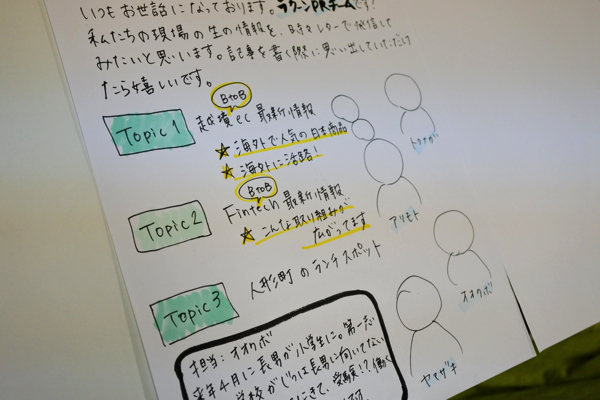 いつもお世話になっております。ラクーンPRチームです!
私たちの現場の生の情報を、時々レターで発信して
みたいと思います。記事を書く際に思い出していただけ
たら嬉しいです。
BtoB
Topic1
越境ec 最新情報
★海外で人気の日本商品
★海外に活路!
BtoB
Topic2
Fintech 最新情報
★こんな取り組みが
広がってます
Topic3
人形町のランチスポット
トクナガ
アリモト
オオクボ
ヤマザキ
担当:オオクボ
来年4月に長男が小学生に。第一志
学校がじつは長男に向いてない
にきて、受験!?働く